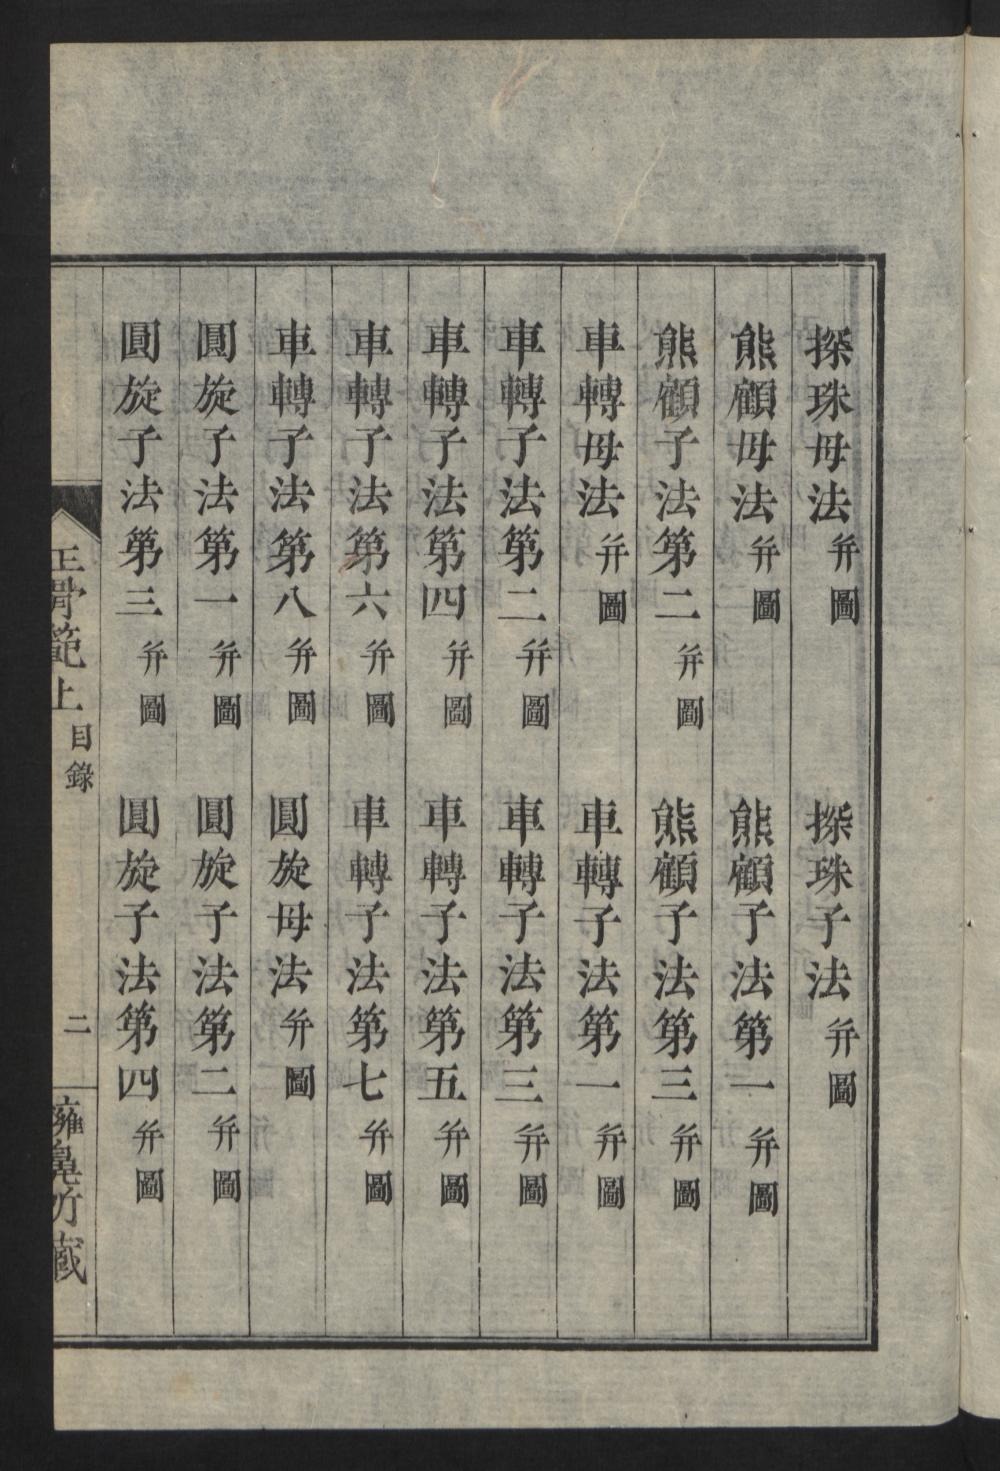 探珠母法 并圖　探珠子法 并圖
熊顧母法 并圖　熊顧子法第一 并圖
熊顧子法第二 并圖　熊顧子法第三 并圖
車轉母法 并圖　車轉子法第一 并圖
車轉子法第二 并圖　車轉子法第三 并圖
車轉子法第四 并圖　車轉子法第五 并圖
車轉子法第六 并圖　車轉子法第七 并圖
車轉子法第八 并圖　圓旋母法 并圖
圓旋子法第一 并圖　圓旋子法第二 并圖
圓旋子法第三 并圖　圓旋子法第四 并圖
正骨範上 目錄 二